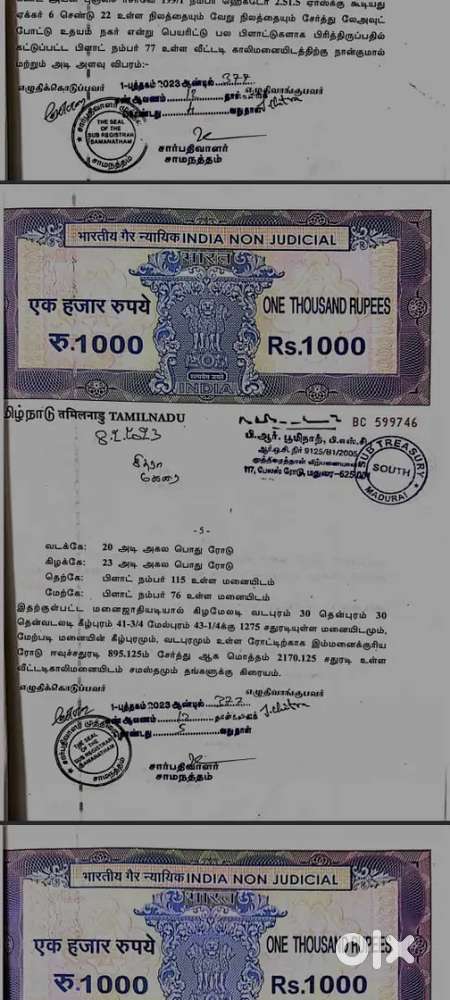 ஏக்கர் 6 செண்டு 22 உள்ள நிலத்தையும் வேறு நிலத்தையும் சேர்த்து லேஅவுட்
போட்டு உதயம் நகர் என்று பெயரிட்டு பல பிளாட்டுகளாக பிரித்திருப்பதில்
கட்டுப்பட்ட பிளாட் நம்பர் 77 உள்ள வீட்டடி காலிமனையிடத்திற்கு நான்குமால்
மற்றும் அடி அளவு விபரம்:-
எழுதிக்கொடுப்பவர் 1-புத்தகம் 2023 ஆண்டில் 377 எழுதிவாங்குபவர்
ஆவணம் 12 தாள்
4 வது தாள்
THE SEAL
OF THE
SUB REGISTRAR
SAMANATHAM
சாமநத்தம்
சார்பதிவாளர்
சாமநத்தம்
भारतीय गैर न्यायिक INDIA NON JUDICIAL
भारत
एक हजार रुपये ONE THOUSAND RUPEES
रु.1000 Rs.1000
सत्यमेव जयते
INDIA
மிழ்நாடு तमिलनाडु TAMILNADU
BC 599746
8.2.2023
சித்ரா
மதுரை
பி.ஆர். பூமிநாத், பி.எஸ்.சி.
ஆர்.ஓ.சி. நிர் 9125/B1/2005
117, பேலஸ் ரோடு, மதுரை-625 001
SUB TREASURY
SOUTH
MADURAI
-5-
வடக்கே: 20 அடி அகல பொது ரோடு
கிழக்கே: 23 அடி அகல பொது ரோடு
தெற்கே: பிளாட் நம்பர் 115 உள்ள மனையிடம்
மேற்கே: பிளாட் நம்பர் 76 உள்ள மனையிடம்
இதற்குள்பட்ட மனைஜாதியடியால் கிழமேலடி வடபுறம் 30 தென்புறம் 30
தென்வடலடி கீழ்புறம் 41-3/4 மேல்புறம் 43-1/4க்கு 1275 சதுரடியுள்ள மனையிடமும்,
மேற்படி மனையின் கீழ்புறமும், வடபுறமும் உள்ள ரோட்டிற்காக இம்மனைக்குரிய
ரோடு ஈவுச்சதுரடி 895.125ம் சேர்த்து ஆக மொத்தம் 2170.125 சதுரடி உள்ள
வீட்டடிகாலிமனையிடம் சமஸ்தமும் தங்களுக்கு கிரையம்.
எழுதிக்கொடுப்பவர் எழுதிவாங்குபவர்
1-புத்தகம் 2023 ஆண்டில் 377
ஆவணம் 12
5 வது தாள்
THE SEAL
OF THE
SUB REGISTRAR
SAMANATHAM
சாமநத்தம்
சார்பதிவாளர்
சாமநத்தம்
भारतीय गैर न्यायिक INDIA NON JUDICIAL
भारत
एक हजार रुपये ONE THOUSAND RUPEES
रु.1000 Rs.1000
olx